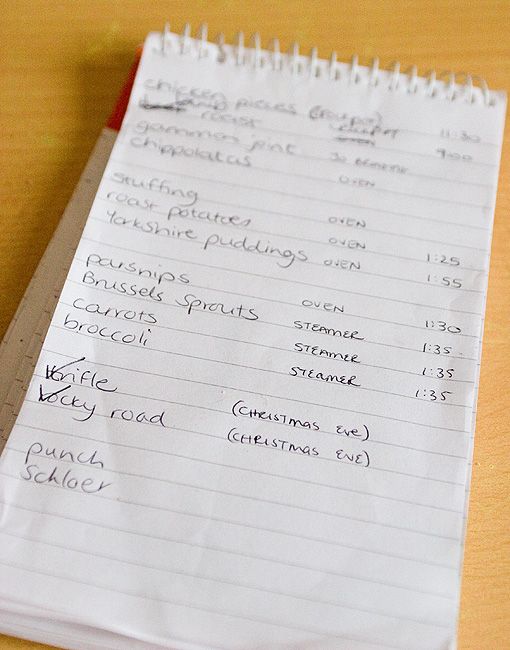 chicken pieces 11:30
roast 9:00
gammon joint
chippolatas OVEN
stuffing OVEN
roast potatoes OVEN 1:25
Yorkshire puddings OVEN 1:55
parsnips OVEN 1:30
Brussels Sprouts STEAMER 1:35
carrots STEAMER 1:35
broccoli STEAMER 1:35
trifle (CHRISTMAS EVE)
rocky road (CHRISTMAS EVE)
punch
Schloer